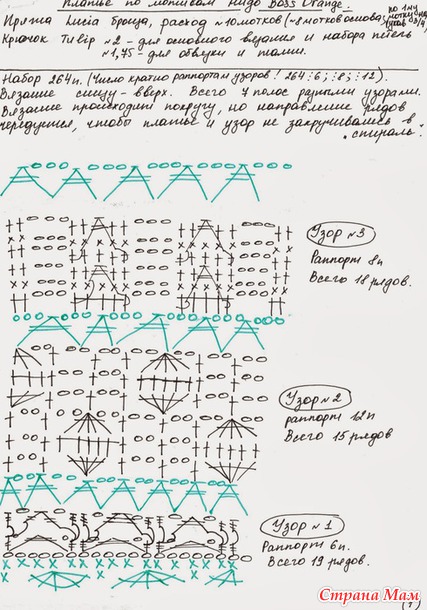 Платье по мотивам Hugo Boss Orange.
Пряжа Lucia Броща, расход ≈10 мотков (≈8 мотков основа;
по 1 му
мотку
рукав
Крючок Tulip №2 - для основного вязания и набора петель
№1,75 - для обвязки и талии.
Набор 264п. (Число кратно раппортам узоров! 264:6; :8; :12).
Вязание снизу-вверх. Всего 7 полос разными узорами.
Вязание происходит по кругу, но направление рядов
чередуется, чтобы платье и узор не закручивались в
спираль.
Узор №3
Раппорт 8п
Всего 18 рядов.
Узор №2
раппорт 12п
Всего 15 рядов
Узор №1
Раппорт 6п.
Всего 19 рядов.
(1)
Страна Мам